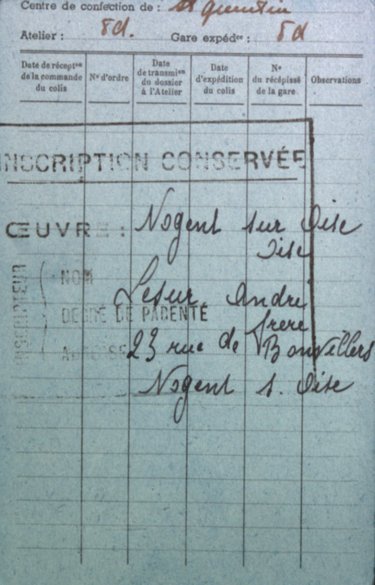 Centre de confection de : St Quentin
Atelier : 8d. Gare expédre : 8d
Date de récepton de la commande du colis
No d'ordre
Date de transmion du dossier à l'Atelier
Date d'expédition du colis
No du récépissé de la gare
Observations
INSCRIPTION CONSERVÉE
ŒUVRE : Nogent sur Oise
Oise
INSCRIPTEUR
NOM Lesur André
DEGRÉ DE PARENTÉ frere
ADRESSE 23 rue de Bonvillers
Nogent s. Oise